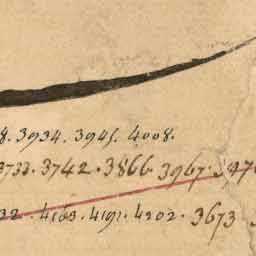 8. 3934. 3945. 4008.
3733. 3742. 3866. 3967.
4163. 4191. 4202. 3673